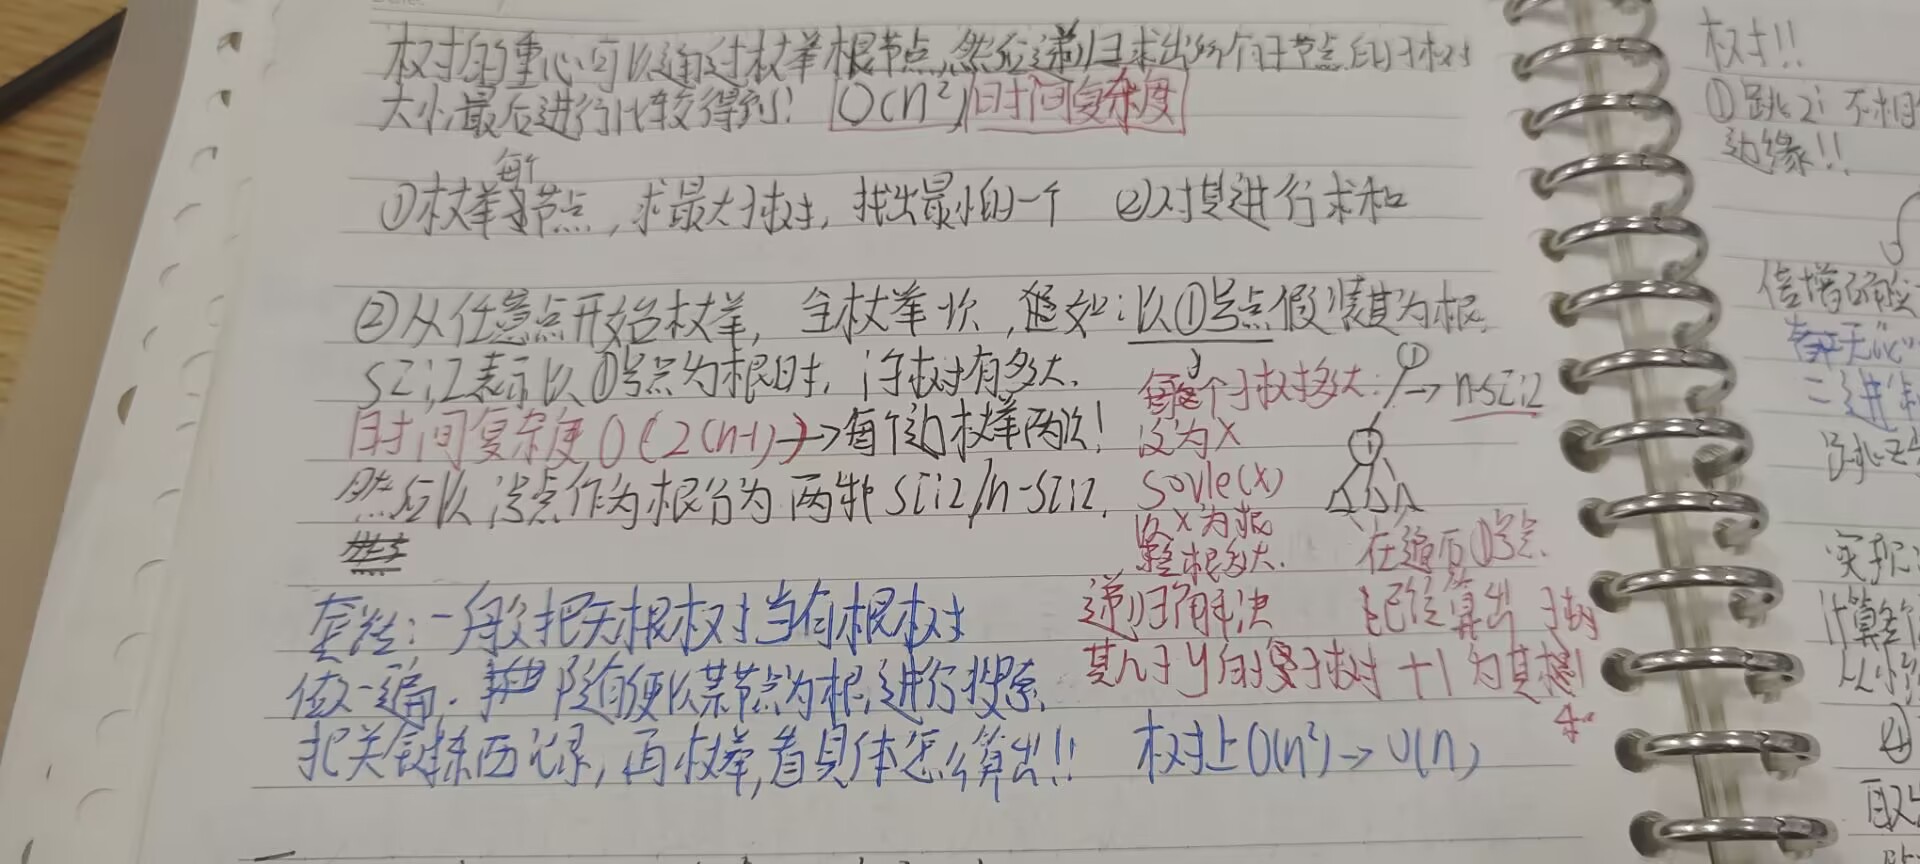 树的重心可以通过枚举根节点,然后递归求出每个子节点的子树
大小,最后进行比较得到! O(n²) 时间复杂度
①枚举每个节点,求最大子树,找出最小的一个 ②对其进行求和
②从任意点开始枚举,全枚举次,:以①号点假装其为根,
sz[i]表示以①号点为根时,i子树有多大.
时间复杂度O(2(n-1))→每个边枚举两次!
然后以i号点作为根分为两半 sz[i]/n-sz[i].
每个子树多大:
① → n-sz[i]
设为X
i
Sovle(x)
以X为根
整根多大.
在遍历①号点
递归解决
已经算出子树
其儿子y的子树+1为其树
套路:一般把无根树当有根树
做一遍. 随便以某节点为根,进行搜索,
把关键东西记录,再枚举,看具体怎么算出!!
树上O(n²)→O(n)
树!!
①跳2i 不相
边缘!!
倍增
二进制
实现
计算
取